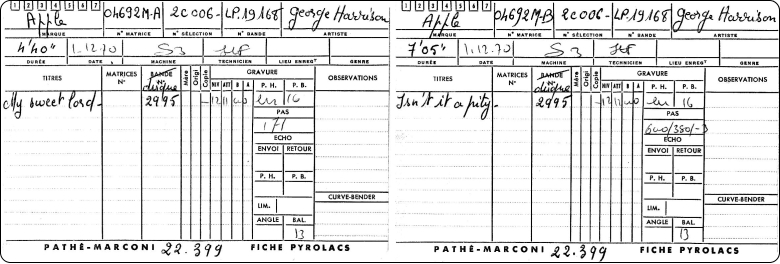 1 2 3 4 5 6 7
Apple 04692M.A 2C006- LP.19168 George Harrison
MARQUE N° MATRICE N° SÉLECTION N° BANDE ARTISTE
4'40" 1.12.70 S3
DURÉE DATE MACHINE TECHNICIEN LIEU ENREGt GENRE
TITRES MATRICES N° BANDE N° disque Mère Origi Copie GRAVURE OBSERVATIONS
NIV ATT B A P. H. P. B.
My sweet Lord - 2995 - 12 11 40 16
PAS
171
ECHO
ENVOI RETOUR
P. H. P. B.
CURVE-BENDER
LIM.
ANGLE BAL.
13
PATHÉ-MARCONI 22.399 FICHE PYROLACS
1 2 3 4 5 6 7
Apple 04692M.B 2C006- LP.19168 George Harrison
MARQUE N° MATRICE N° SÉLECTION N° BANDE ARTISTE
7'05" 1.12.70 S3
DURÉE DATE MACHINE TECHNICIEN LIEU ENREGt GENRE
TITRES MATRICES N° BANDE N° disque Mère Origi Copie GRAVURE OBSERVATIONS
NIV ATT B A P. H. P. B.
Isn't it a pity - 2995 - 12 11 40 16
PAS
600/350/-3
ECHO
ENVOI RETOUR
P. H. P. B.
CURVE-BENDER
LIM.
ANGLE BAL.
13
PATHÉ-MARCONI 22.399 FICHE PYROLACS